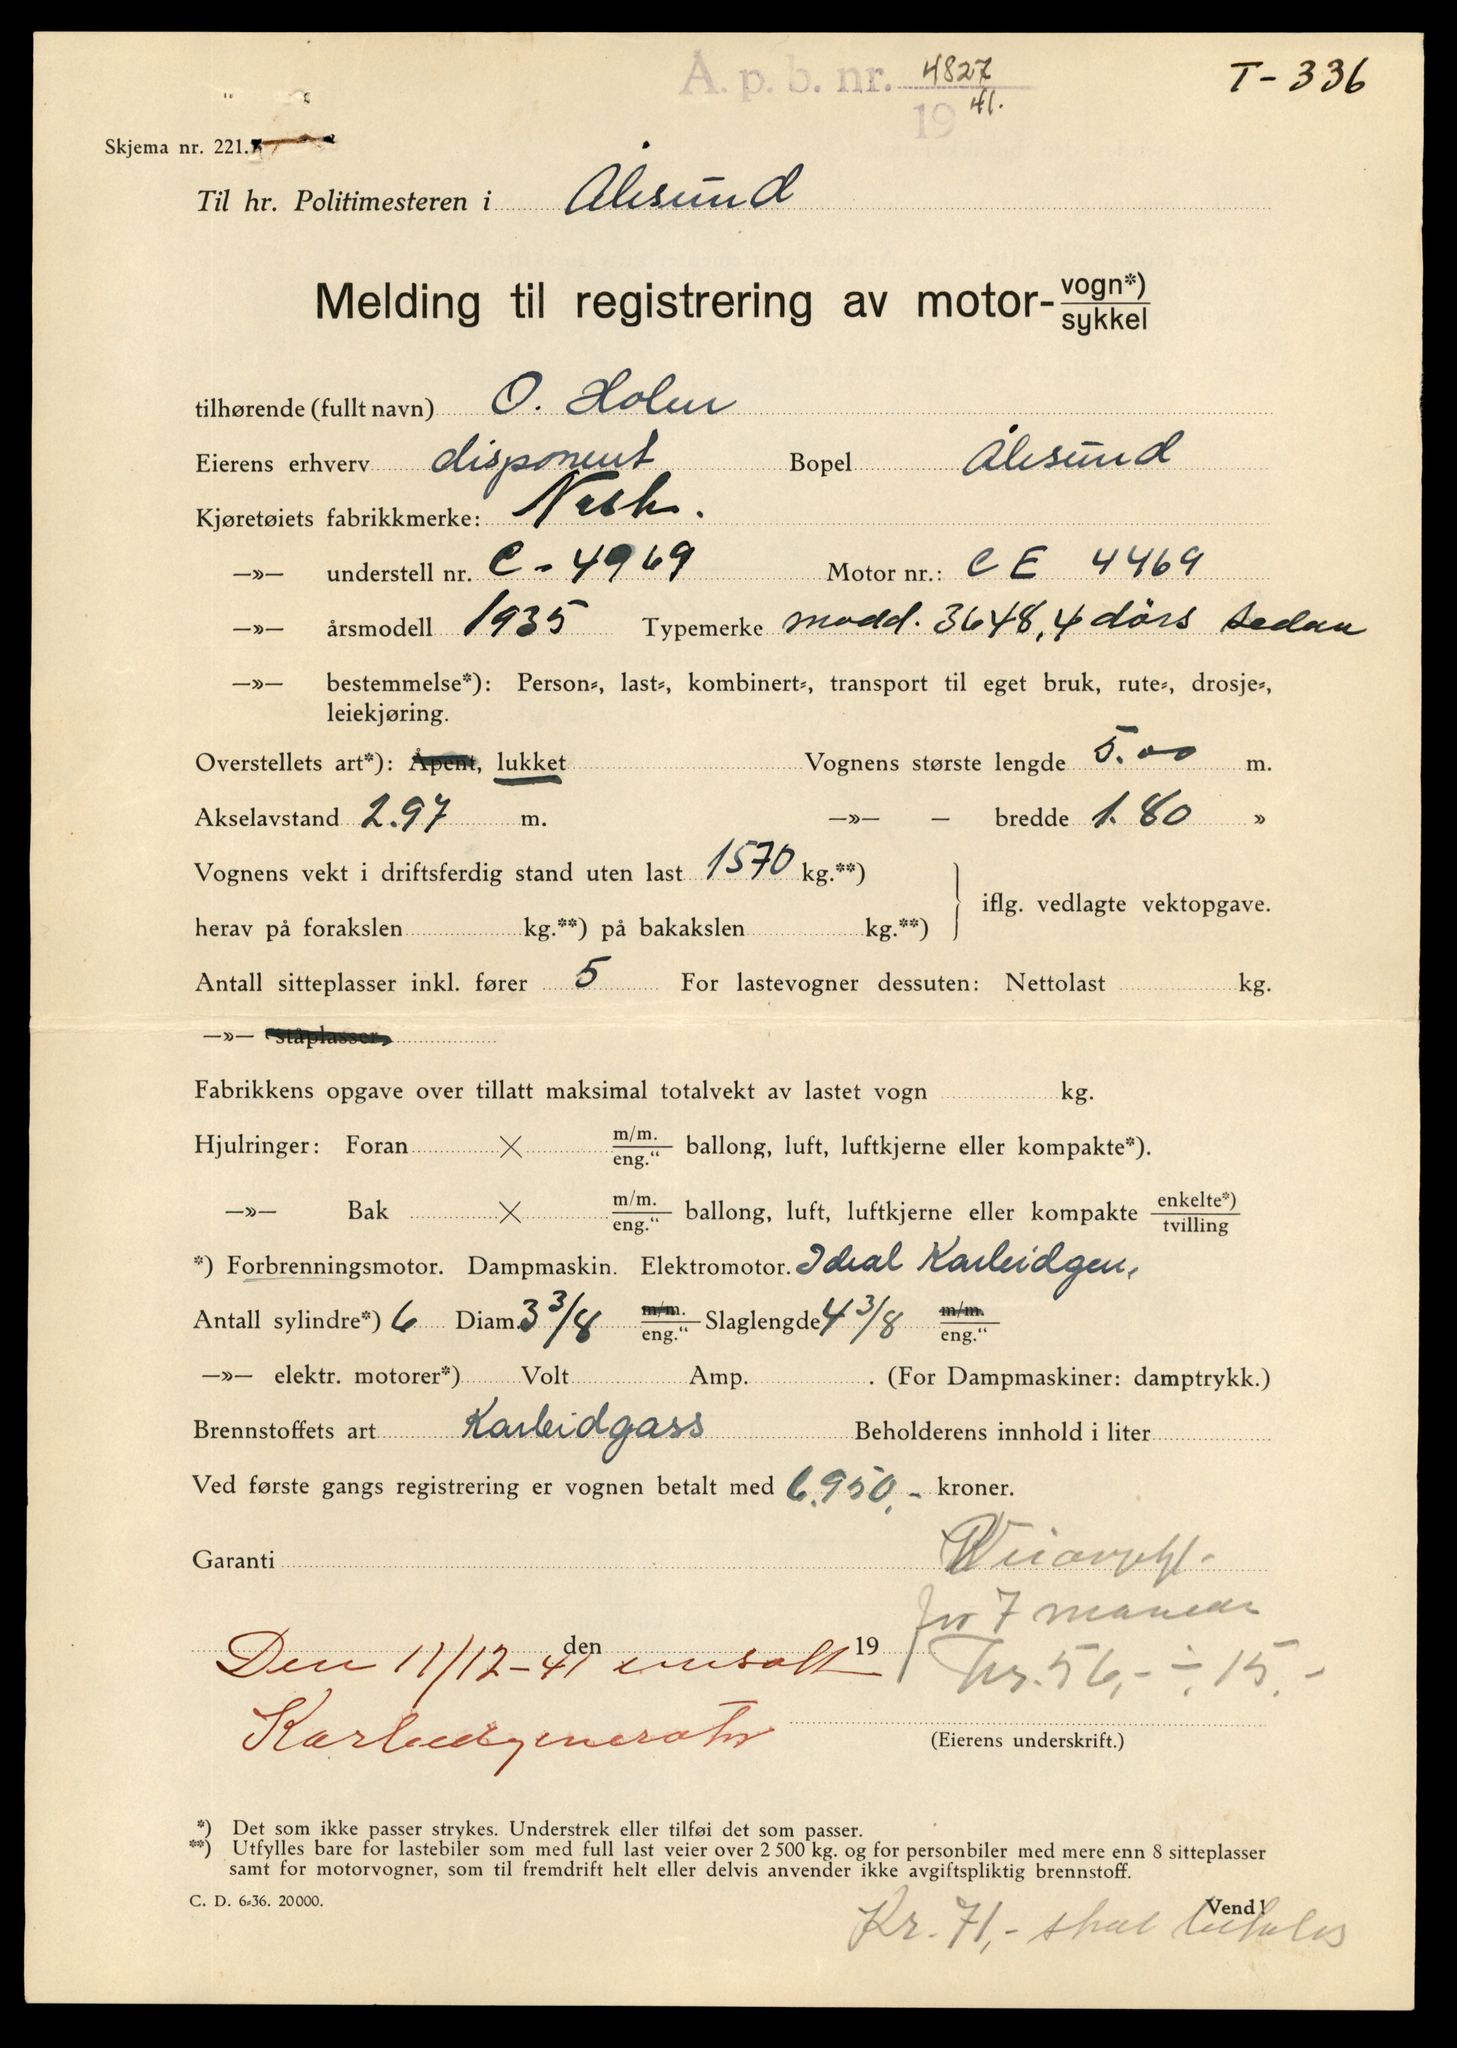 Å. p. b. nr. 4827
19 41.
T - 336
Skjema nr. 221.
Til hr. Politimesteren i Ålesund
Melding til registrering av motor- vogn*) / sykkel
tilhørende (fullt navn) O. Holen
Eierens erhverv disponent Bopel Ålesund
Kjøretøiets fabrikkmerke: Nash.
—»— understell nr. C - 4969 Motor nr.: C E 4469
—»— årsmodell 1935 Typemerke modd. 3648, 4 dørs sedan
—»— bestemmelse*): Person-, last-, kombinert-, transport til eget bruk, rute-, drosje-,
leiekjøring.
Overstellets art*): Åpent, lukket Vognens største lengde 5.00 m.
Akselavstand 2.97 m. —»— — bredde 1.80 »
Vognens vekt i driftsferdig stand uten last 1570 kg.**)
herav på forakslen kg.**) på bakakslen kg.**) iflg. vedlagte vektopgave.
Antall sitteplasser inkl. fører 5 For lastevogner dessuten: Nettolast kg.
—»— ståplasser
Fabrikkens opgave over tillatt maksimal totalvekt av lastet vogn kg.
Hjulringer: Foran × m/m. / eng." ballong, luft, luftkjerne eller kompakte*).
—»— Bak × m/m. / eng." ballong, luft, luftkjerne eller kompakte enkelte*) / tvilling
*) Forbrenningsmotor. Dampmaskin. Elektromotor. Ideal Karbidgen.
Antall sylindre*) 6 Diam. 3 3/8 m/m. / eng." Slaglengde 4 3/8 m/m. / eng."
—»— elektr. motorer*) Volt Amp. . (For Dampmaskiner: damptrykk.)
Brennstoffets art Karbidgass Beholderens innhold i liter
Ved første gangs registrering er vognen betalt med 6.950,- kroner.
Garanti
for 7 måneder
den 19
Den 11/12-41 innsatt kr. 56,- ÷ 15,-
Karbidgenerator
(Eierens underskrift.)
*) Det som ikke passer strykes. Understrek eller tilføi det som passer.
**) Utfylles bare for lastebiler som med full last veier over 2 500 kg. og for personbiler med mere enn 8 sitteplasser
samt for motorvogner, som til fremdrift helt eller delvis anvender ikke avgiftspliktig brennstoff.
C. D. 6-36. 20000. Vend!
Kr. 71,- skal betales